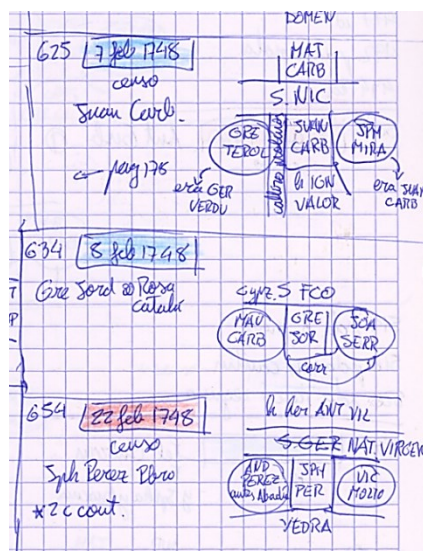 DOMEN
625 7 feb 1748
censo
Juan Carb.
← pag 178
MAT
CARB
S. NIC
GRE
TEROL
callizo
JUAN
CARB
JPH
MIRA
era GER
VERDU
h IGN
VALOR
era JUAN
CARB
634 8 feb 1748
Gre Jord Rosa
Catalá
S FCO
MAU
CARB
GRE
JOR
JOA
SERR
corr
654 22 feb 1748
censo
Jph Perez Plvro
*2 c cont.
h her ANT VIL
S. GER NAT. VIRGEN
AND
PEREZ
antes Abadia
JPH
PER
VIC
MOLTO
VEDRA
T
P